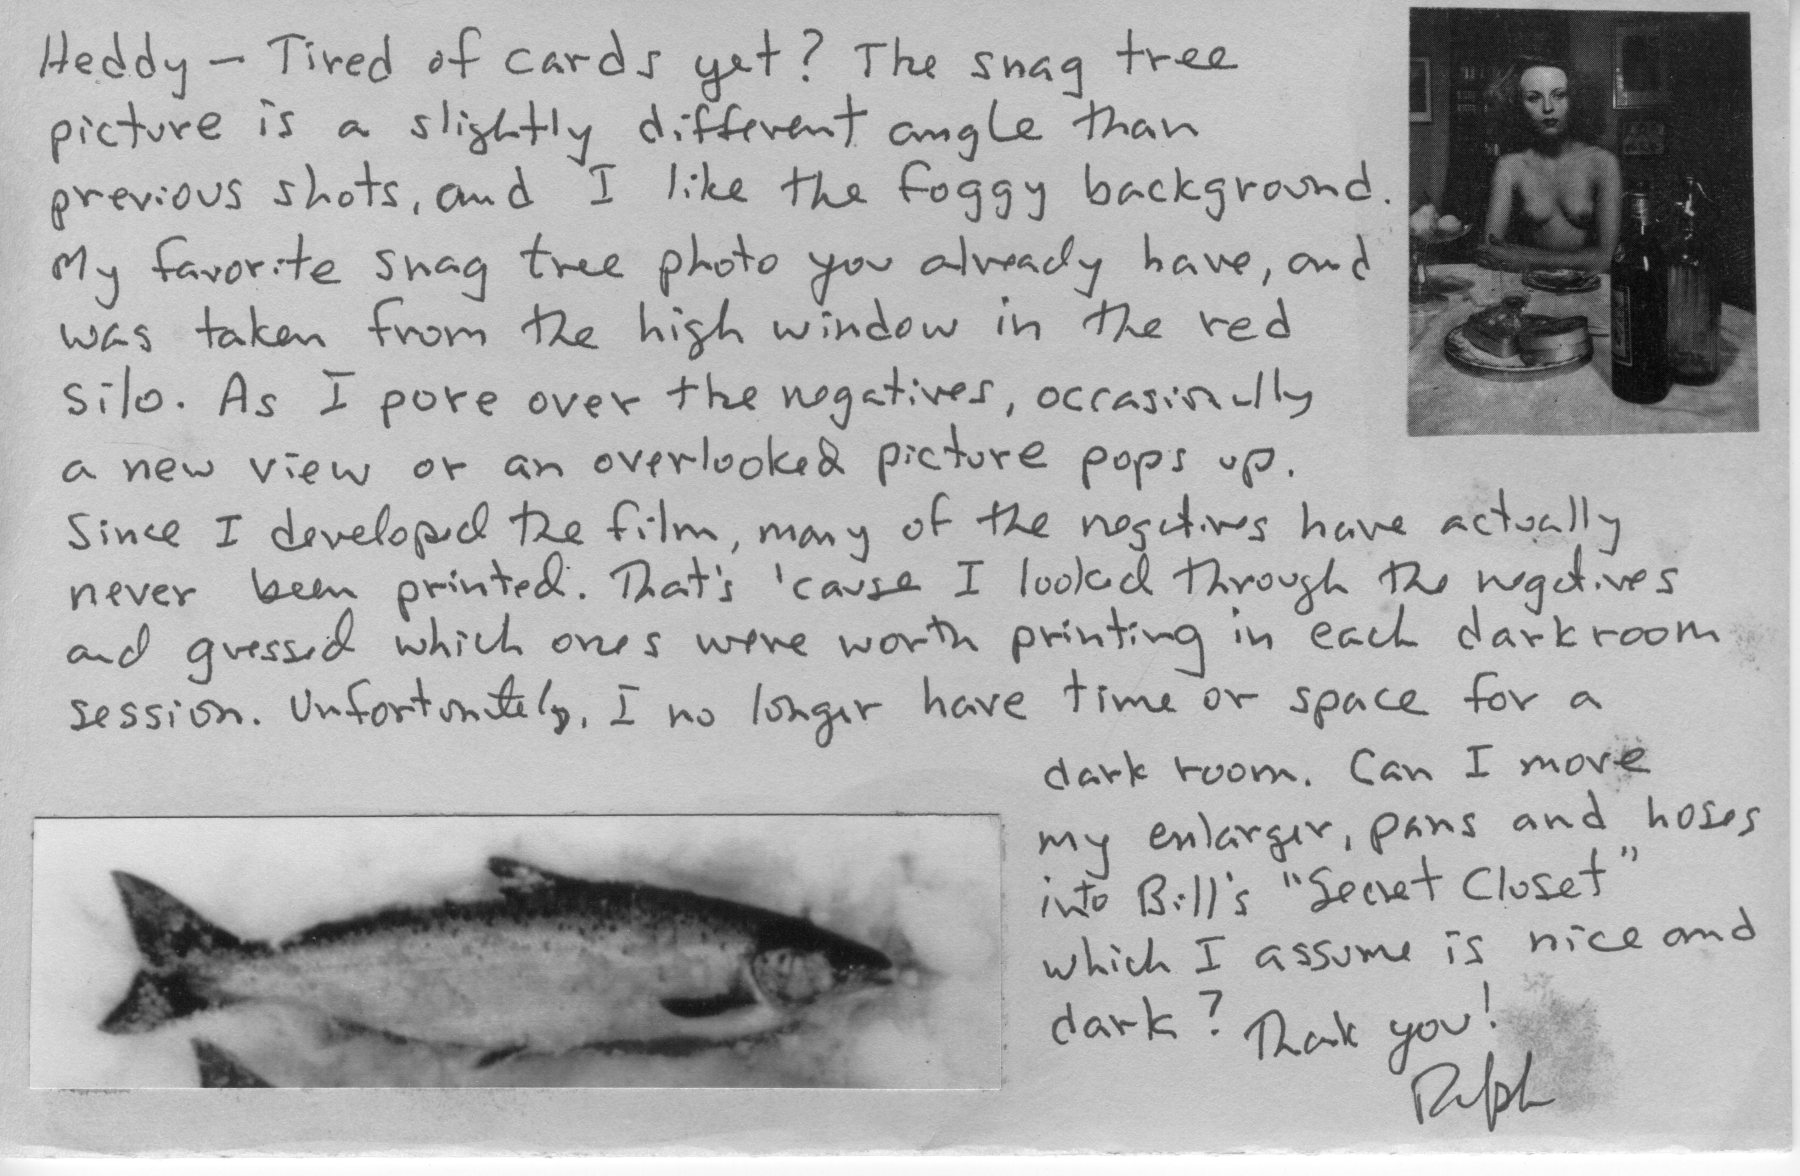 Heddy – Tired of cards yet? The snag tree
picture is a slightly different angle than
previous shots, and I like the foggy background.
My favorite snag tree photo you already have, and
was taken from the high window in the red
silo. As I pore over the negatives, occasionally
a new view or an overlooked picture pops up.
Since I developed the film, many of the negatives have actually
never been printed. That's 'cause I looked through the negatives
and guessed which ones were worth printing in each darkroom
session. Unfortunately, I no longer have time or space for a
dark room. Can I move
my enlarger, pans and hoses
into Bill's "Secret Closet"
which I assume is nice and
dark? Thank you!
Ralph